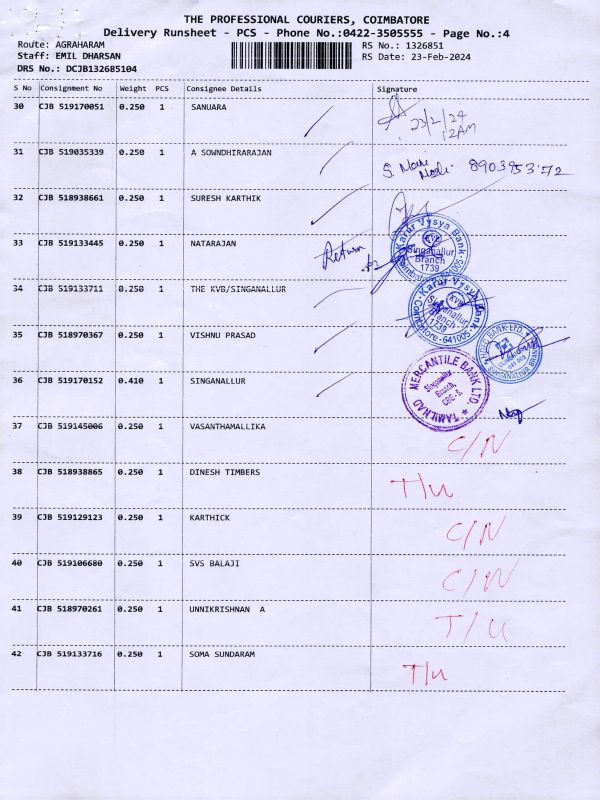 THE PROFESSIONAL COURIERS, COIMBATORE
Delivery Runsheet - PCS - Phone No.:0422-3505555 - Page No.:4
Route: AGRAHARAM
RS No.: 1326851
Staff: EMIL DHARSAN
RS Date: 23-Feb-2024
DRS No.: DCJB132685104
S No Consignment No Weight PCS Consignee Details Signature
30 CJB 519170051 0.250 1 SANUARA 23/2/24
12AM
31 CJB 519035339 0.250 1 A SOWNDHIRARAJAN S. 8903953172
32 CJB 518938661 0.250 1 SURESH KARTHIK
33 CJB 519133445 0.250 1 NATARAJAN Return
Karur Vysya Bank
KVB
Singanallur
Branch
1739
34 CJB 519133711 0.250 1 THE KVB/SINGANALLUR
Karur Vysya Bank
KVB
Singanallur
Branch
1739
Coimbatore-641005
35 CJB 518970367 0.250 1 VISHNU PRASAD
BANK LTD.
SINGANALLUR BRANCH
36 CJB 519170152 0.410 1 SINGANALLUR
TAMILNAD MERCANTILE BANK LTD.
Singanallur
Branch,
CBE-5
37 CJB 519145006 0.250 1 VASANTHAMALLIKA C/N
38 CJB 518938865 0.250 1 DINESH TIMBERS T/U
39 CJB 519129123 0.250 1 KARTHICK C/N
40 CJB 519106680 0.250 1 SVS BALAJI C/N
41 CJB 518970261 0.250 1 UNNIKRISHNAN A T/U
42 CJB 519133716 0.250 1 SOMA SUNDARAM T/U